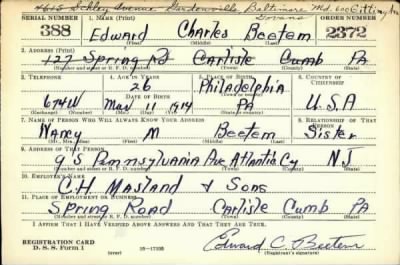 4615 Schley Avenue Gardenville Baltimore Md. 600 Gittings Ave
Govans
SERIAL NUMBER 1. NAME (Print) ORDER NUMBER
388 Edward Charles Beetem 2372
(First) (Middle) (Last)
2. ADDRESS (Print)
127 Spring Rd Carlisle Cumb PA
(Number and street or R. F. D. number) (Town) (County) (State)
3. TELEPHONE 4. AGE IN YEARS 5. PLACE OF BIRTH 6. COUNTRY OF CITIZENSHIP
26 Philadelphia
DATE OF BIRTH
674W May 11 1914 PA U.S.A
(Exchange) (No.) (Mo.) (Day) (Yr.) (State or country)
7. NAME OF PERSON WHO WILL ALWAYS KNOW YOUR ADDRESS 8. RELATIONSHIP OF THAT PERSON
Nancy M Beetem Sister
(Mr., Mrs., Miss) (First) (Middle) (Last)
9. ADDRESS OF THAT PERSON
9 S Pennsylvania Ave Atlantic Cy NJ
(Number and street or R. F. D. number) (Town) (County) (State)
10. EMPLOYER'S NAME
C. H. Masland & Sons
11. PLACE OF EMPLOYMENT OR BUSINESS
Spring Road Carlisle Cumb PA
(Number and street or R. F. D. number) (Town) (County) (State)
I AFFIRM THAT I HAVE VERIFIED ABOVE ANSWERS AND THAT THEY ARE TRUE.
REGISTRATION CARD
D. S. S. Form 1 (over) 16-17105 Edward C. Beetem
(Registrant's signature)